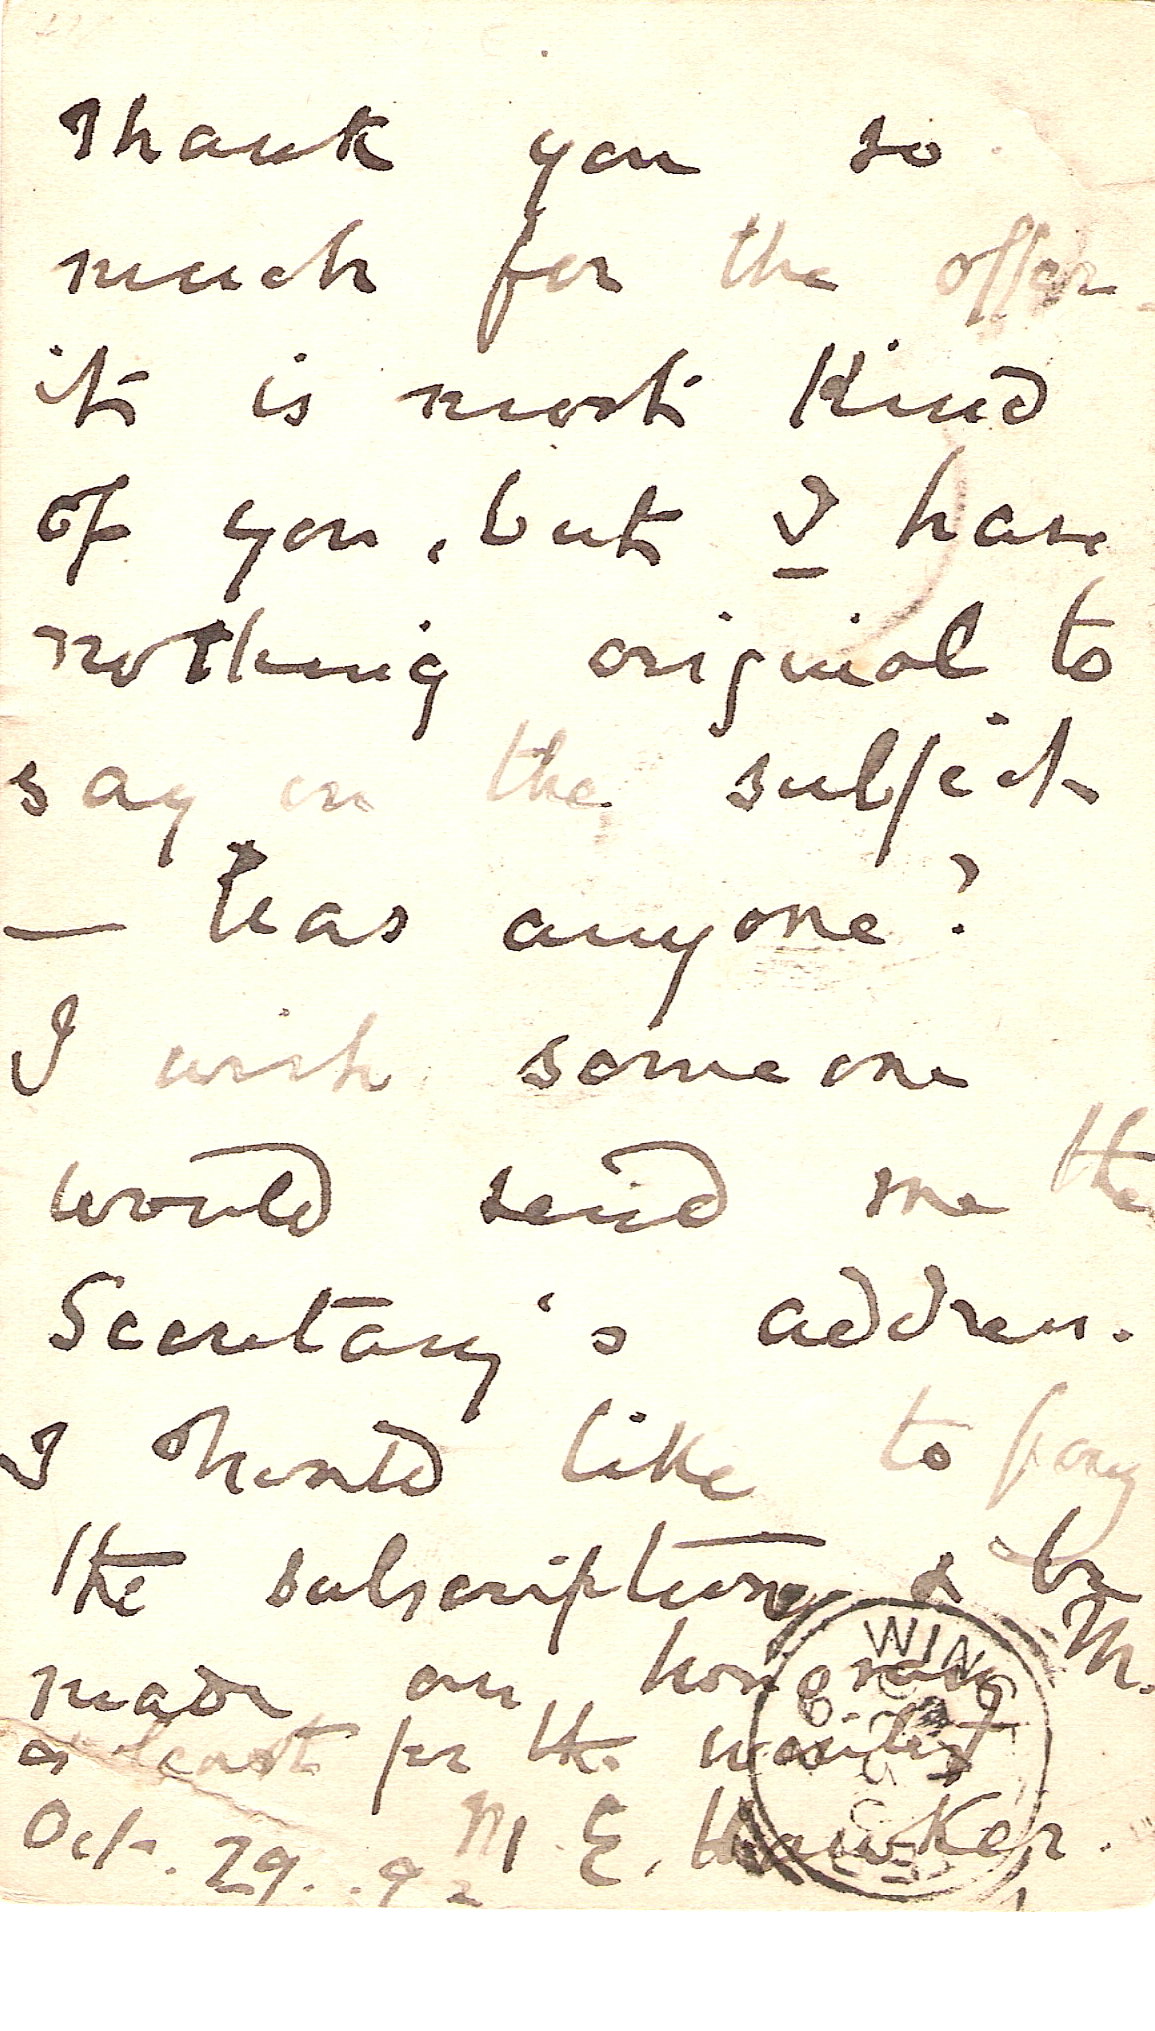 Thank you so
much for the offer -
it is most kind
of you, but I have
nothing original to
say on the subject
— has anyone?
I wish someone
would send me the
Secretary's address.
I should like to pay
the subscription & be
made an honorary M.
at least for the winter
Oct. 29. 92 M. E. Hawker.
WIN